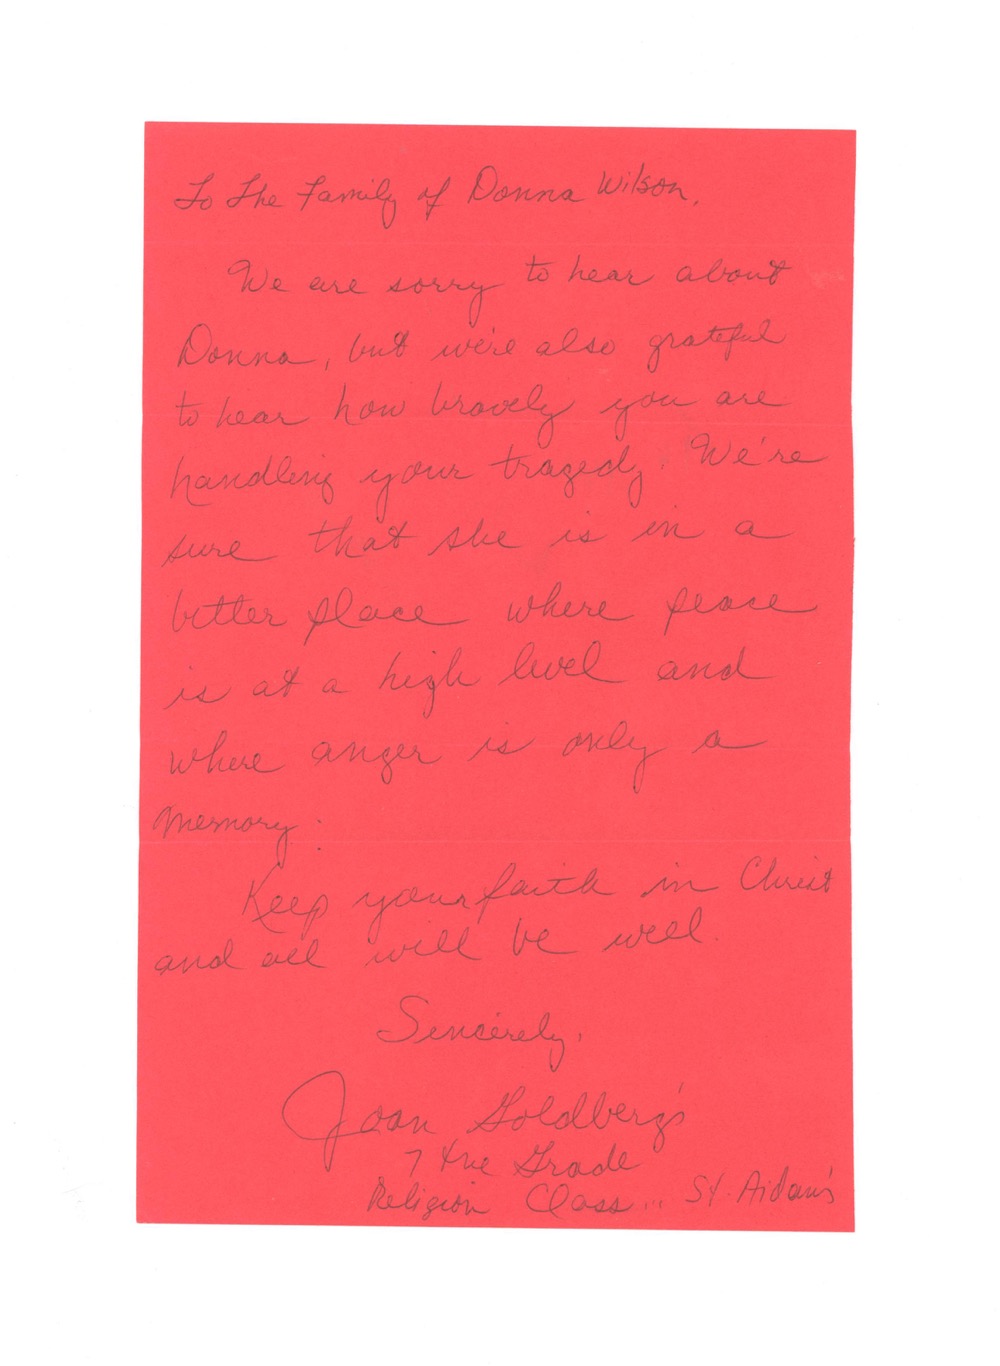 To The Family of Donna Wilson,
We are sorry to hear about
Donna, but we're also grateful
to hear how bravely you are
handling your tragedy. We're
sure that she is in a
better place where peace
is at a high level and
where anger is only a
memory.
Keep your faith in Christ
and all will be well.
Sincerely,
Joan Goldberg's
7 the Grade
Religion Class... St. Aidan's